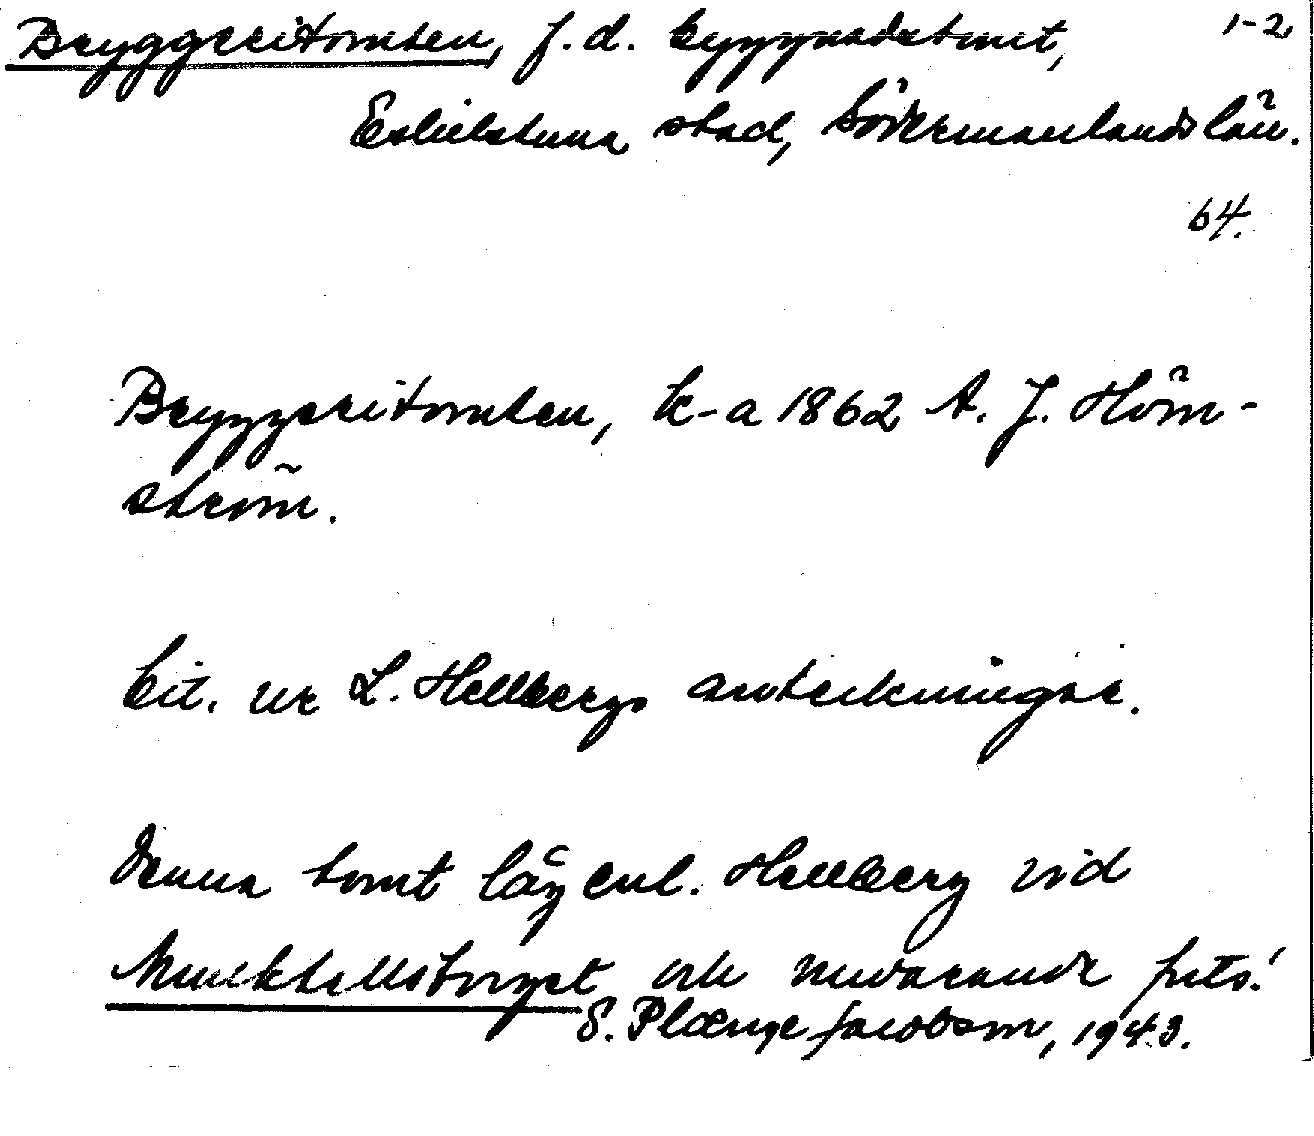 Bryggeritomten, f.d. byggnadstomt, 1-2
Eskilstuna stad, Södermanlands län.
64.
Bryggeritomten, k-a 1862 A. J. Höm-
ström.
Cit. ur L. Hellbergs anteckningar.
Denna tomt låg enl. Hellberg vid
Munktellstorget och nuvarande
S. Plænge Jacobson, 1943.